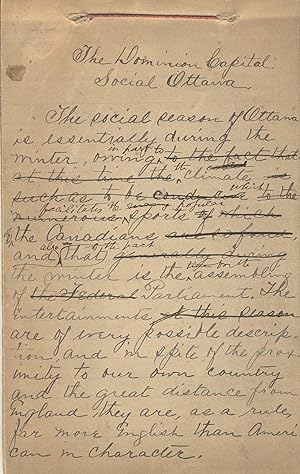 The Dominion Capital.
Social Ottawa
The social season of Ottawa
is essentially during the
in part to
winter, owing to the fact that
the
at this time the climate is
which
such as to be conducive to the
facilitates the many popular
numerous sports of which
of the Canadians and
also to the fact
and that generally during
the winter is the assembling
of the Federal Parliament. The
entertainments at this season
are of every possible descrip-
tion and in spite of the prox-
imity to our own country
and the great distance from
England they are, as a rule,
far more English than Ameri
can in character.